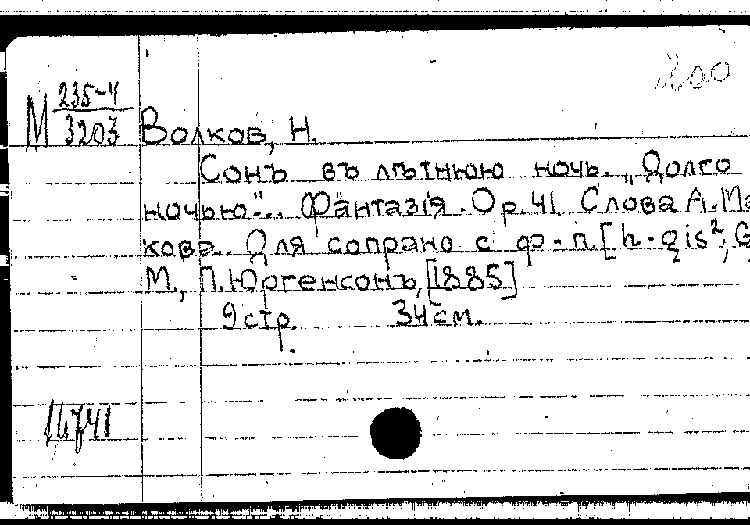 200
М 235-4
3203
Волков, Н.
Сонъ въ лѣтнюю ночь. „Долго
ночью“... Фантазія. Ор. 41 Слова А. Ма
кова. Для сопрано с ф-п. [h-gis²; G
М., П. Юргенсонъ, [1885]
9 стр. 34 см.